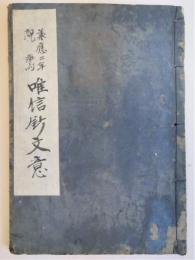 承應二年
唯信鈔文意